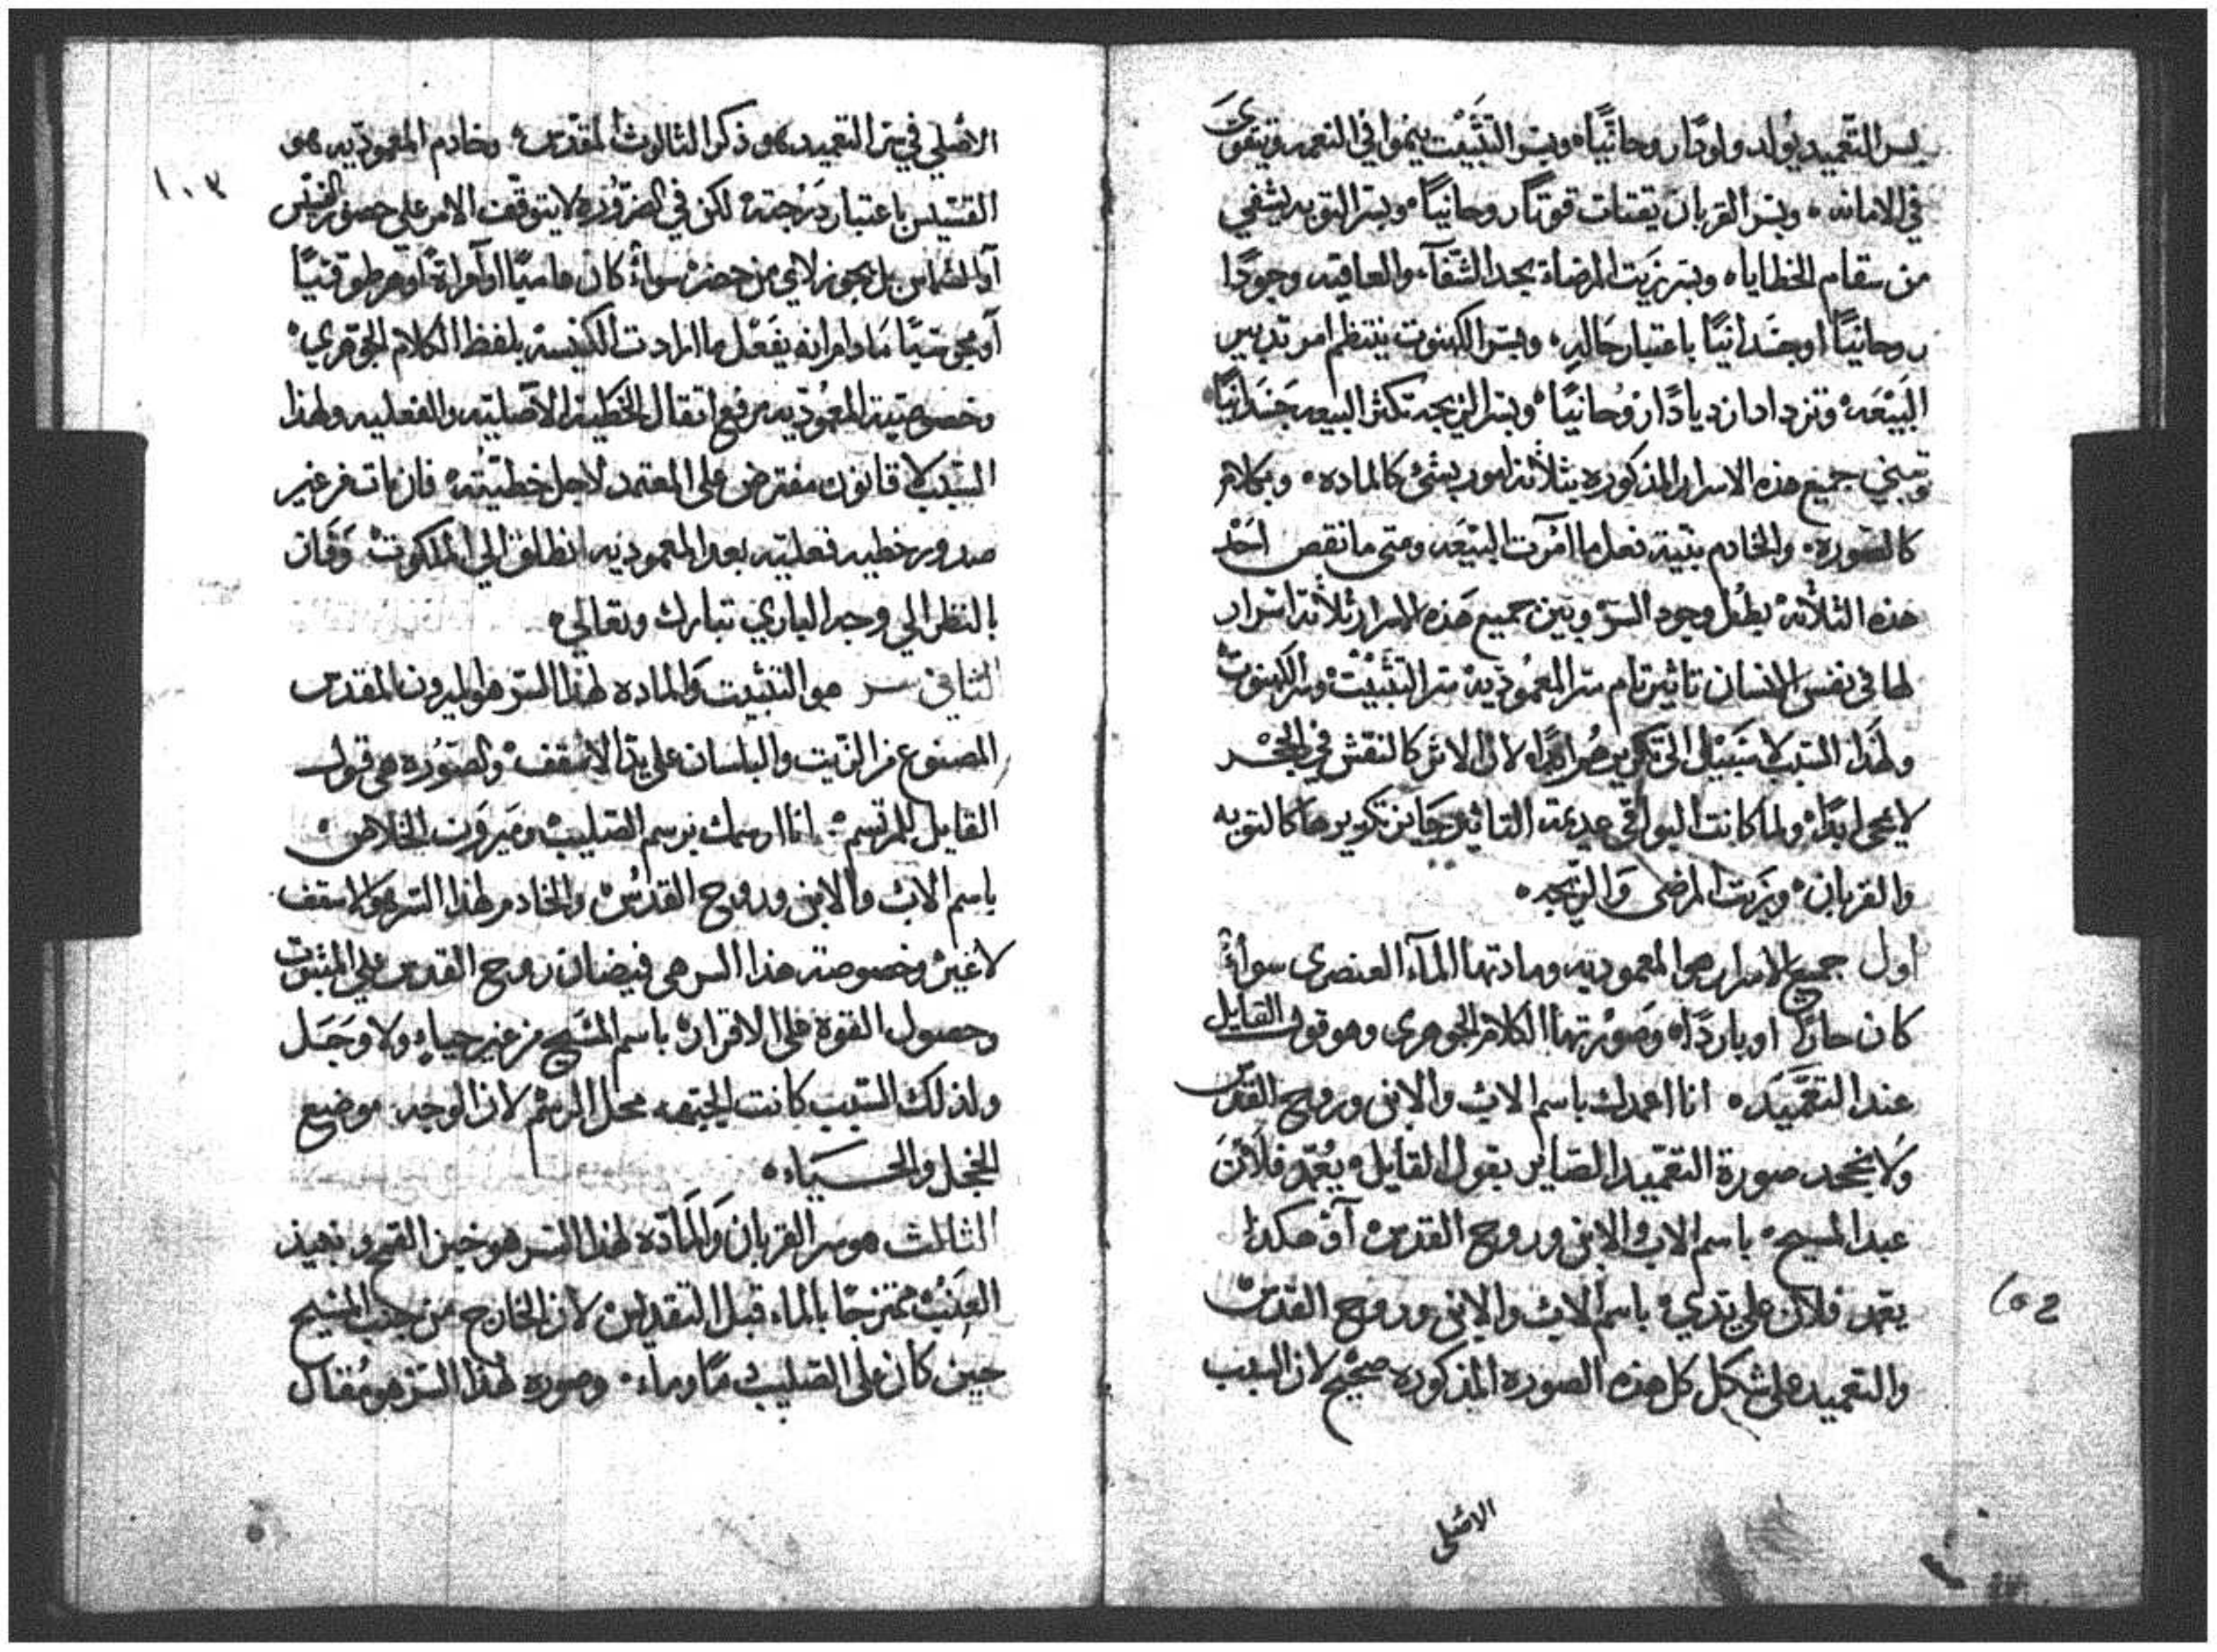 بسر التعميد يولد ولودًا روحانيًا ٥ وبسر التثبيت ينموا في النعمه ويتقوى
في الامانه ٠ وبسر القربان يقتات قوتًا روحانيًا ٥ وبسر التوبه يشفي
من سقام الخطايا ٥ وبسر زيت المرضاة يجد الشفآء والعافيه وجودًا
روحانيًا او جسدانيًا باعتبار حاله ٥ وبسر الكهنوت ينتظم امر تدبير
البيعه ٥ وتزداد ازديادًا روحانيًا ٥ وبسر الزيجه تكثر البيعه جسدانيًا
وتبتني جميع هذه الاسرار المذكوره بثلاثة امور بشئ كالماده ٠ وبكلام
كالصوره ٠ والخادم بنية فعل ما امرت البيعه ومتى ما نقص احد
هذه الثلاثه بطل وجود السر وبين جميع هذه الاسرار ثلاثة اسرار
لها في نفس الانسان تاثير تام سر المعموديه سر التثبيت وسر الكهنوت
ولهذا السبب لا سبيل الى تكريرهم ابدًا لان الاثر كالنقش في الحجر
لا يمحى ابدًا ٥ ولما كانت البواقي عديمة التاثير جاز تكريرها كالتوبه
والقربان ٥ وزيت المرضى والزيجه ٠
اول جميع الاسرار هو المعموديه ومادتها المآء العنصري سوآء
كان حارًا او باردًا ٥ وصورتها الكلام الجوهري وهو قول القايل
عند التعميد ٥ انا اعمدك باسم الاب والابن وروح القدس
ولا نجحد صورة التعميد الصاير بقول القايل ٥ يعمد فلان
عبد المسيح ٥ باسم الاب والابن وروح القدس ٥ او هكذا
يعمد فلان على يدي ٥ باسم الاب والابن وروح القدس
والتعميد على شكل كل هذه الصوره المذكوره صحيح لان السبب
الاصلي
الاصلي في سر التعميد هو ذكر الثالوث المقدس ٥ وخادم المعموديه هو
١٠٣
القسيس باعتبار درجته ٥ لكن في الضروره لا يتوقف الامر على حضور القسيس
او الشماس بل يجوز لاي من حضر ٥ سواء كان عاميًا او امراة او هرطوقيًا
او مجوسيًا ما دام انه يفعل ما ارادت الكنيسه بلفظ الكلام الجوهري ٥
وخصوصية المعموديه رفع اثقال الخطيه الاصليه والفعليه ولهذا
السبب لا قانون مفترض على المعتمد لاجل خطيته ٥ فان مات من غير
صدور خطيه فعليه بعد المعموديه انطلق الي الملكوت ٥ وفاز
بالنظر الي وجه الباري تبارك وتعالي ٥
الثاني سر هو التثبيت والماده لهذا السر هو الميرون المقدس
المصنوع من الزيت والبلسان على يد الاسقف ٥ والصوره هي قول
القايل للمرتسم ٠ انا ارسمك برسم الصليب وميرون الخلاص ٥
باسم الاب والابن وروح القدس ٥ والخادم لهذا السر هو الاسقف
لا غير ٥ وخصوصة هذا السر هي فيضان روح القدس على المثبوت
وحصول القوة على الاقرار ٥ باسم المسيح من غير حياء ولا وجل
ولذلك السبب كانت الجبهه محل الرشم لان الوجه موضع
الخجل والحيــاء ٥
الثالث هو سر القربان والماده لهذا السر هو خبز القمح ونبيذ
العنب ممتزجًا بالماء قبل التقديس لان الخارج من جنب المسيح
حين كان على الصليب دمًا وماء ٠ وصوره لهذا السر هو مقال